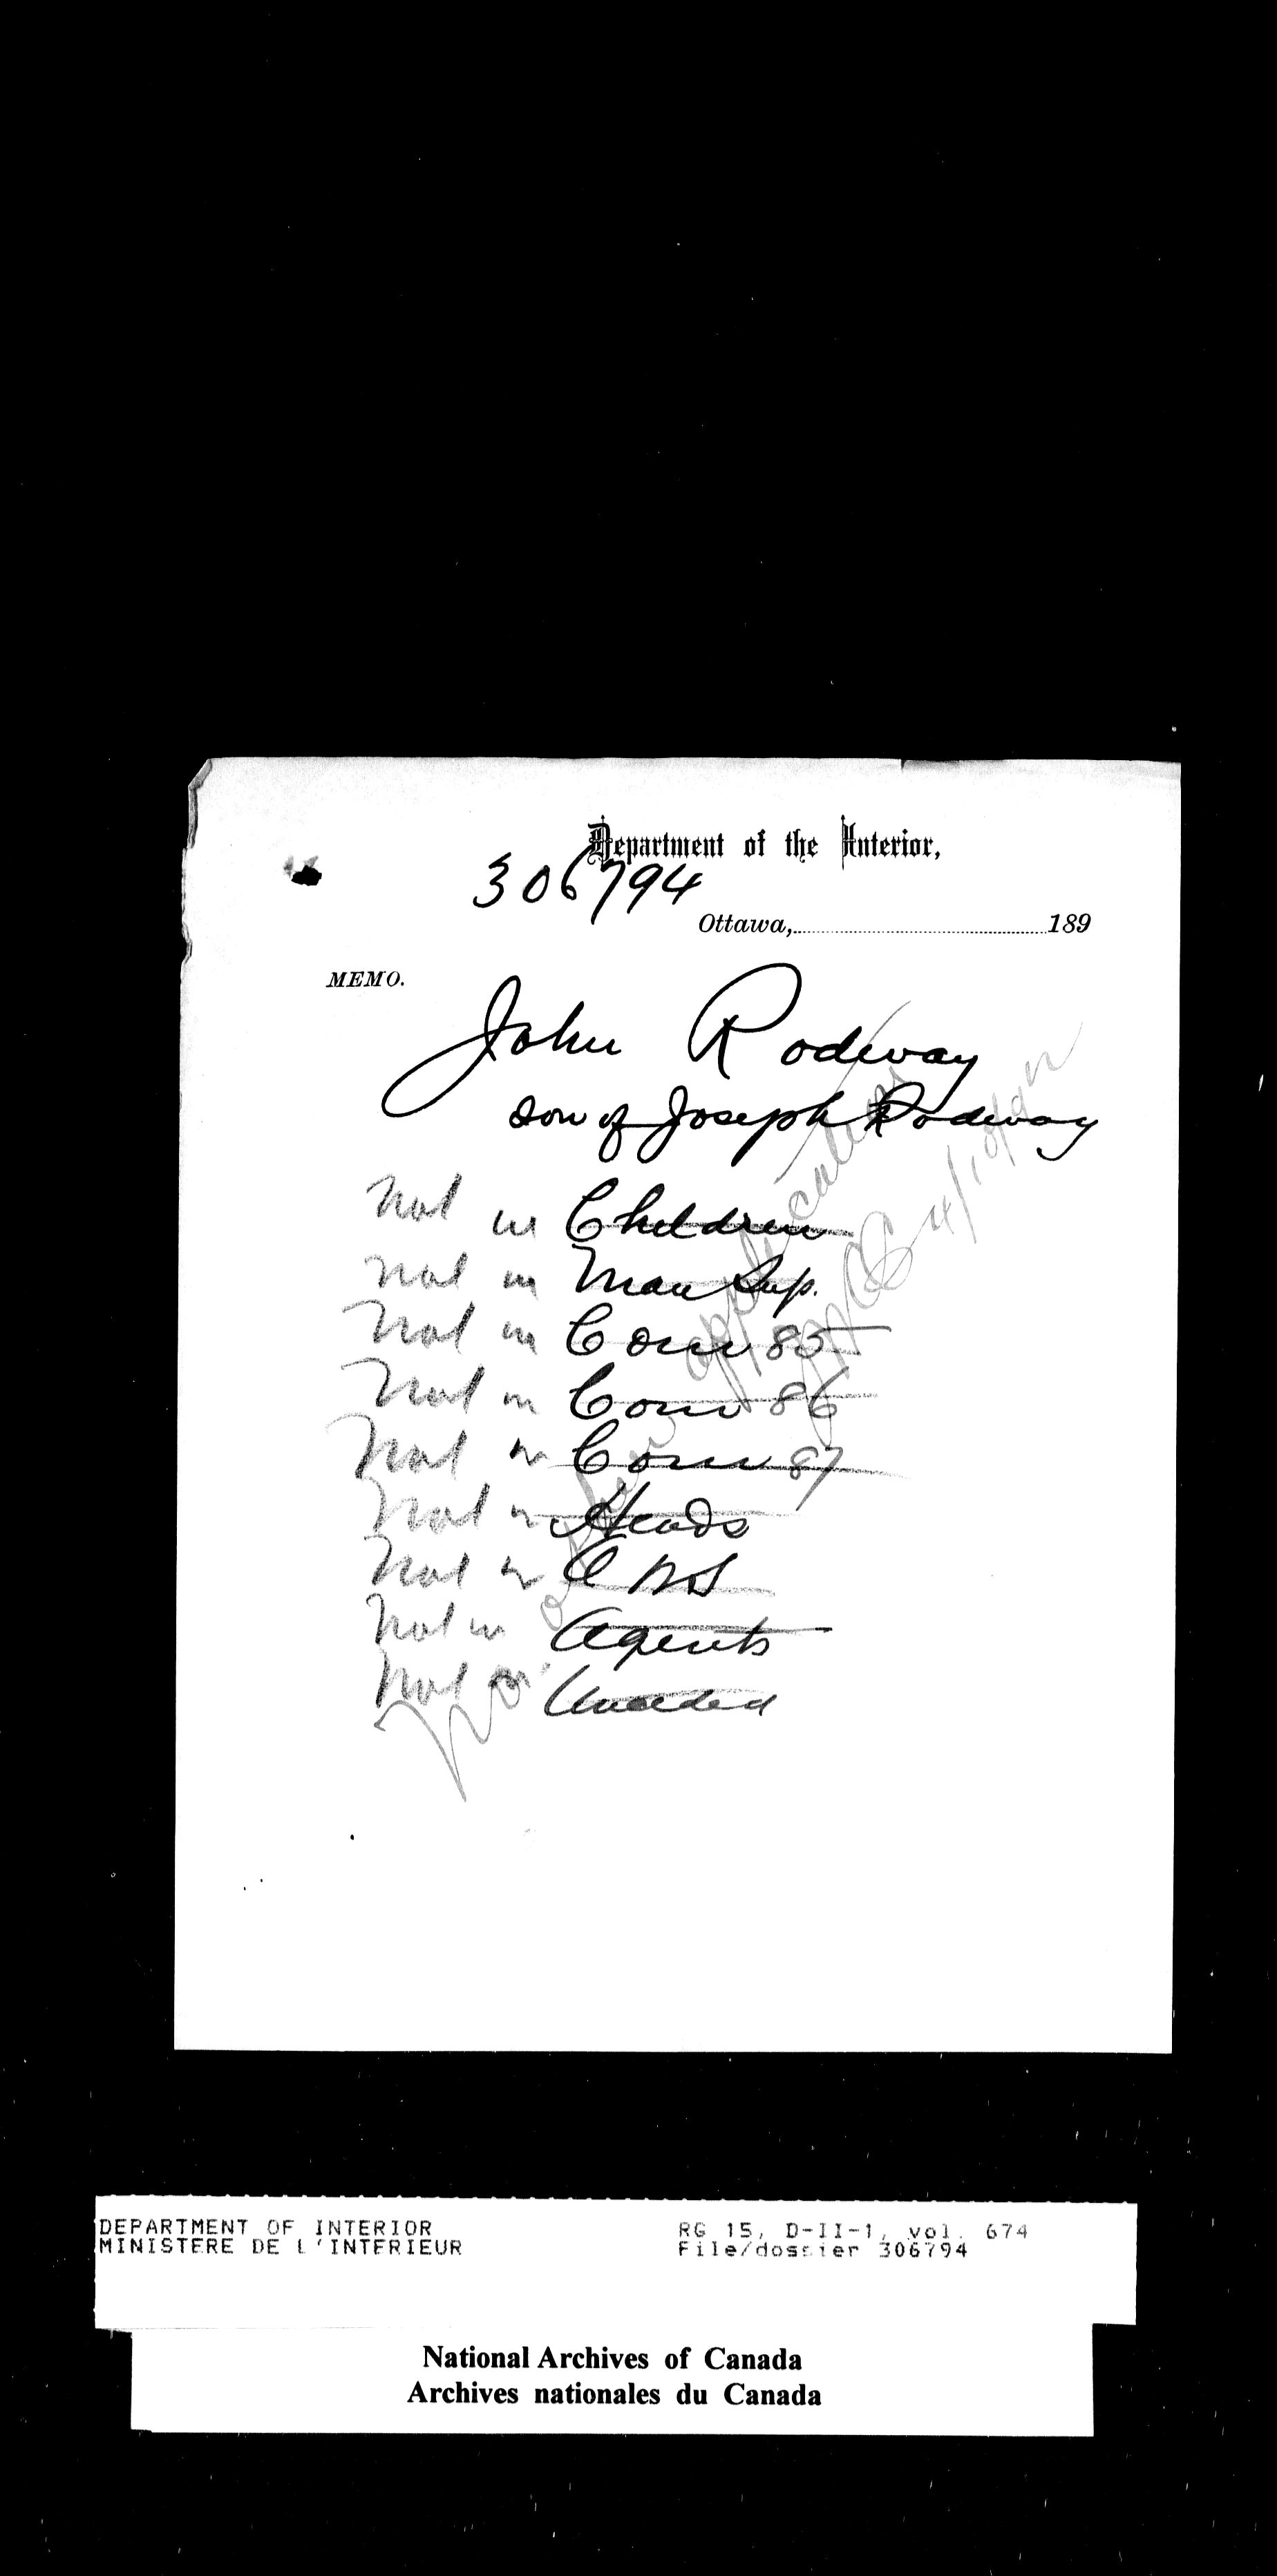 Department of the Interior,
306794
Ottawa, 189
MEMO.
John Rodway
son of Joseph Rodway
Not in Children
Not in Man Sup.
Not in Com 85
Not in Com 86
Not in Com 87
Not in Heads
Not in
Not in Agents
Not in
No other application
DEPARTMENT OF INTERIOR
MINISTERE DE L'INTERIEUR
RG 15, D-II-1, vol. 674
File/dossier 306794
National Archives of Canada
Archives nationales du Canada